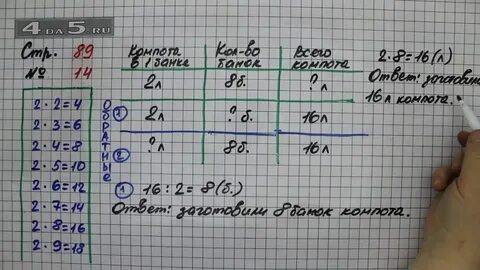 4 DA 5 .RU
Стр. 89
№ 14
2 · 2 = 4
2 · 3 = 6
2 · 4 = 8
2 · 5 = 10
2 · 6 = 12
2 · 7 = 14
2 · 8 = 16
2 · 9 = 18
Обратные
Компота в 1 банке Кол-во банок Всего компота
2л 8б. ? л
① 2л ? б. 16л
② ? л 8б. 16л
① 16 : 2 = 8 (б.)
Ответ: заготовили 8 банок компота.
2 · 8 = 16 (л)
Ответ: заготовили
16 л компота.